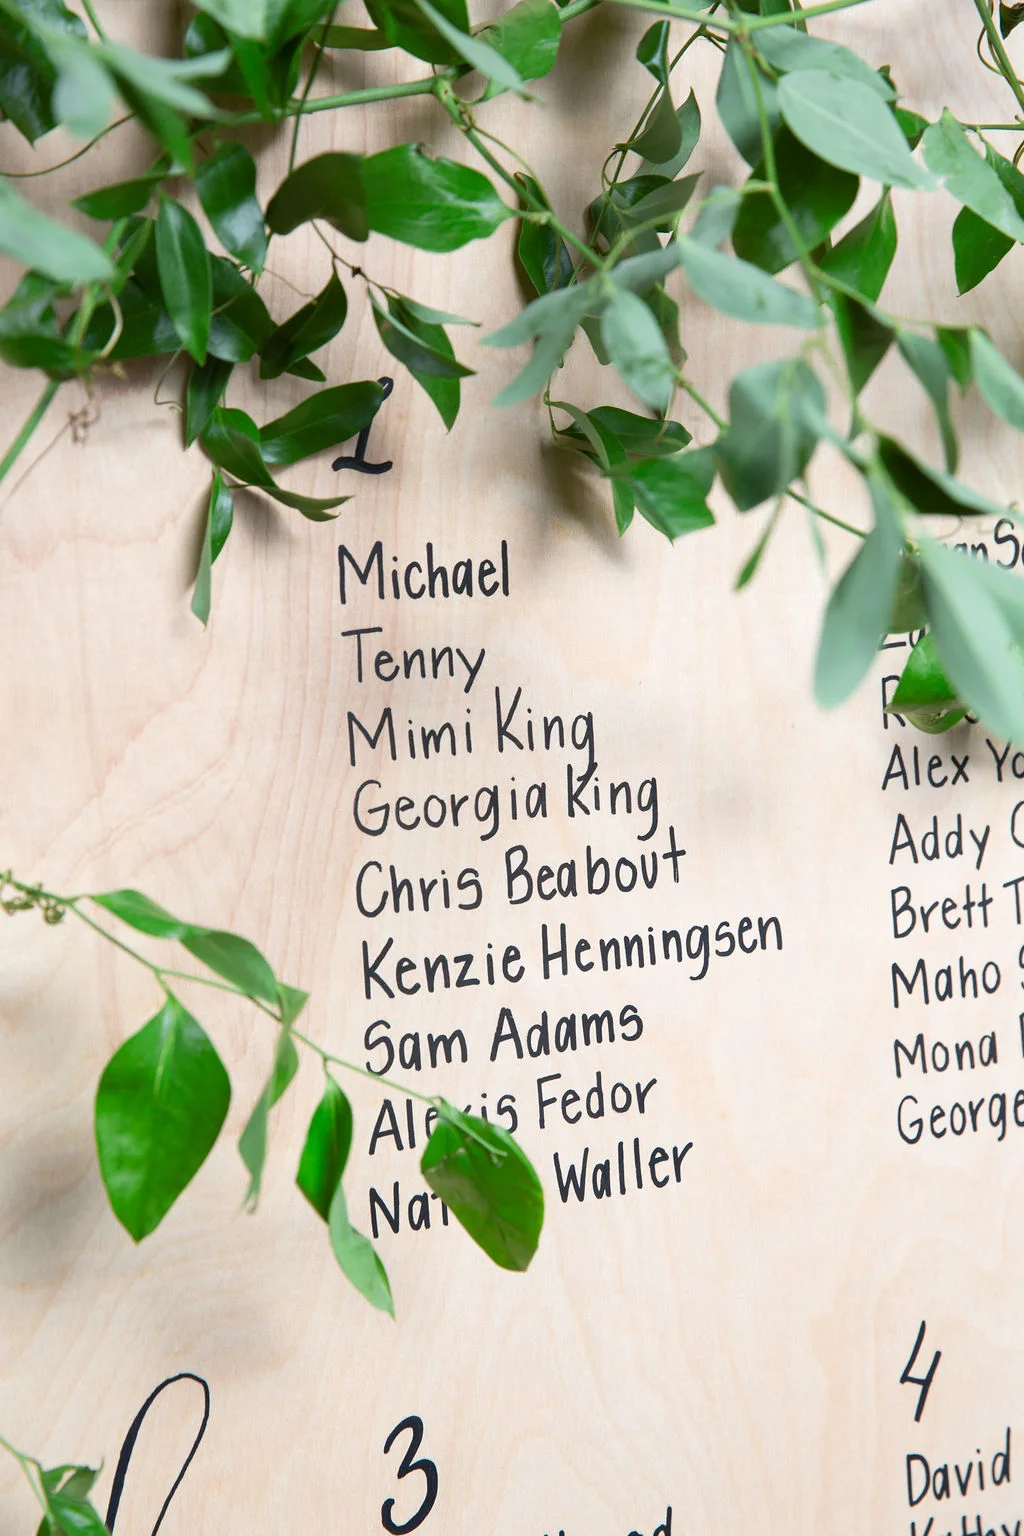 1
Michael
Tenny
Mimi King
Georgia King
Chris Beabout
Kenzie Henningsen
Sam Adams
Alexis Fedor
Waller
Alex
Addy
Brett
Maho
Mona
George
3
4
David